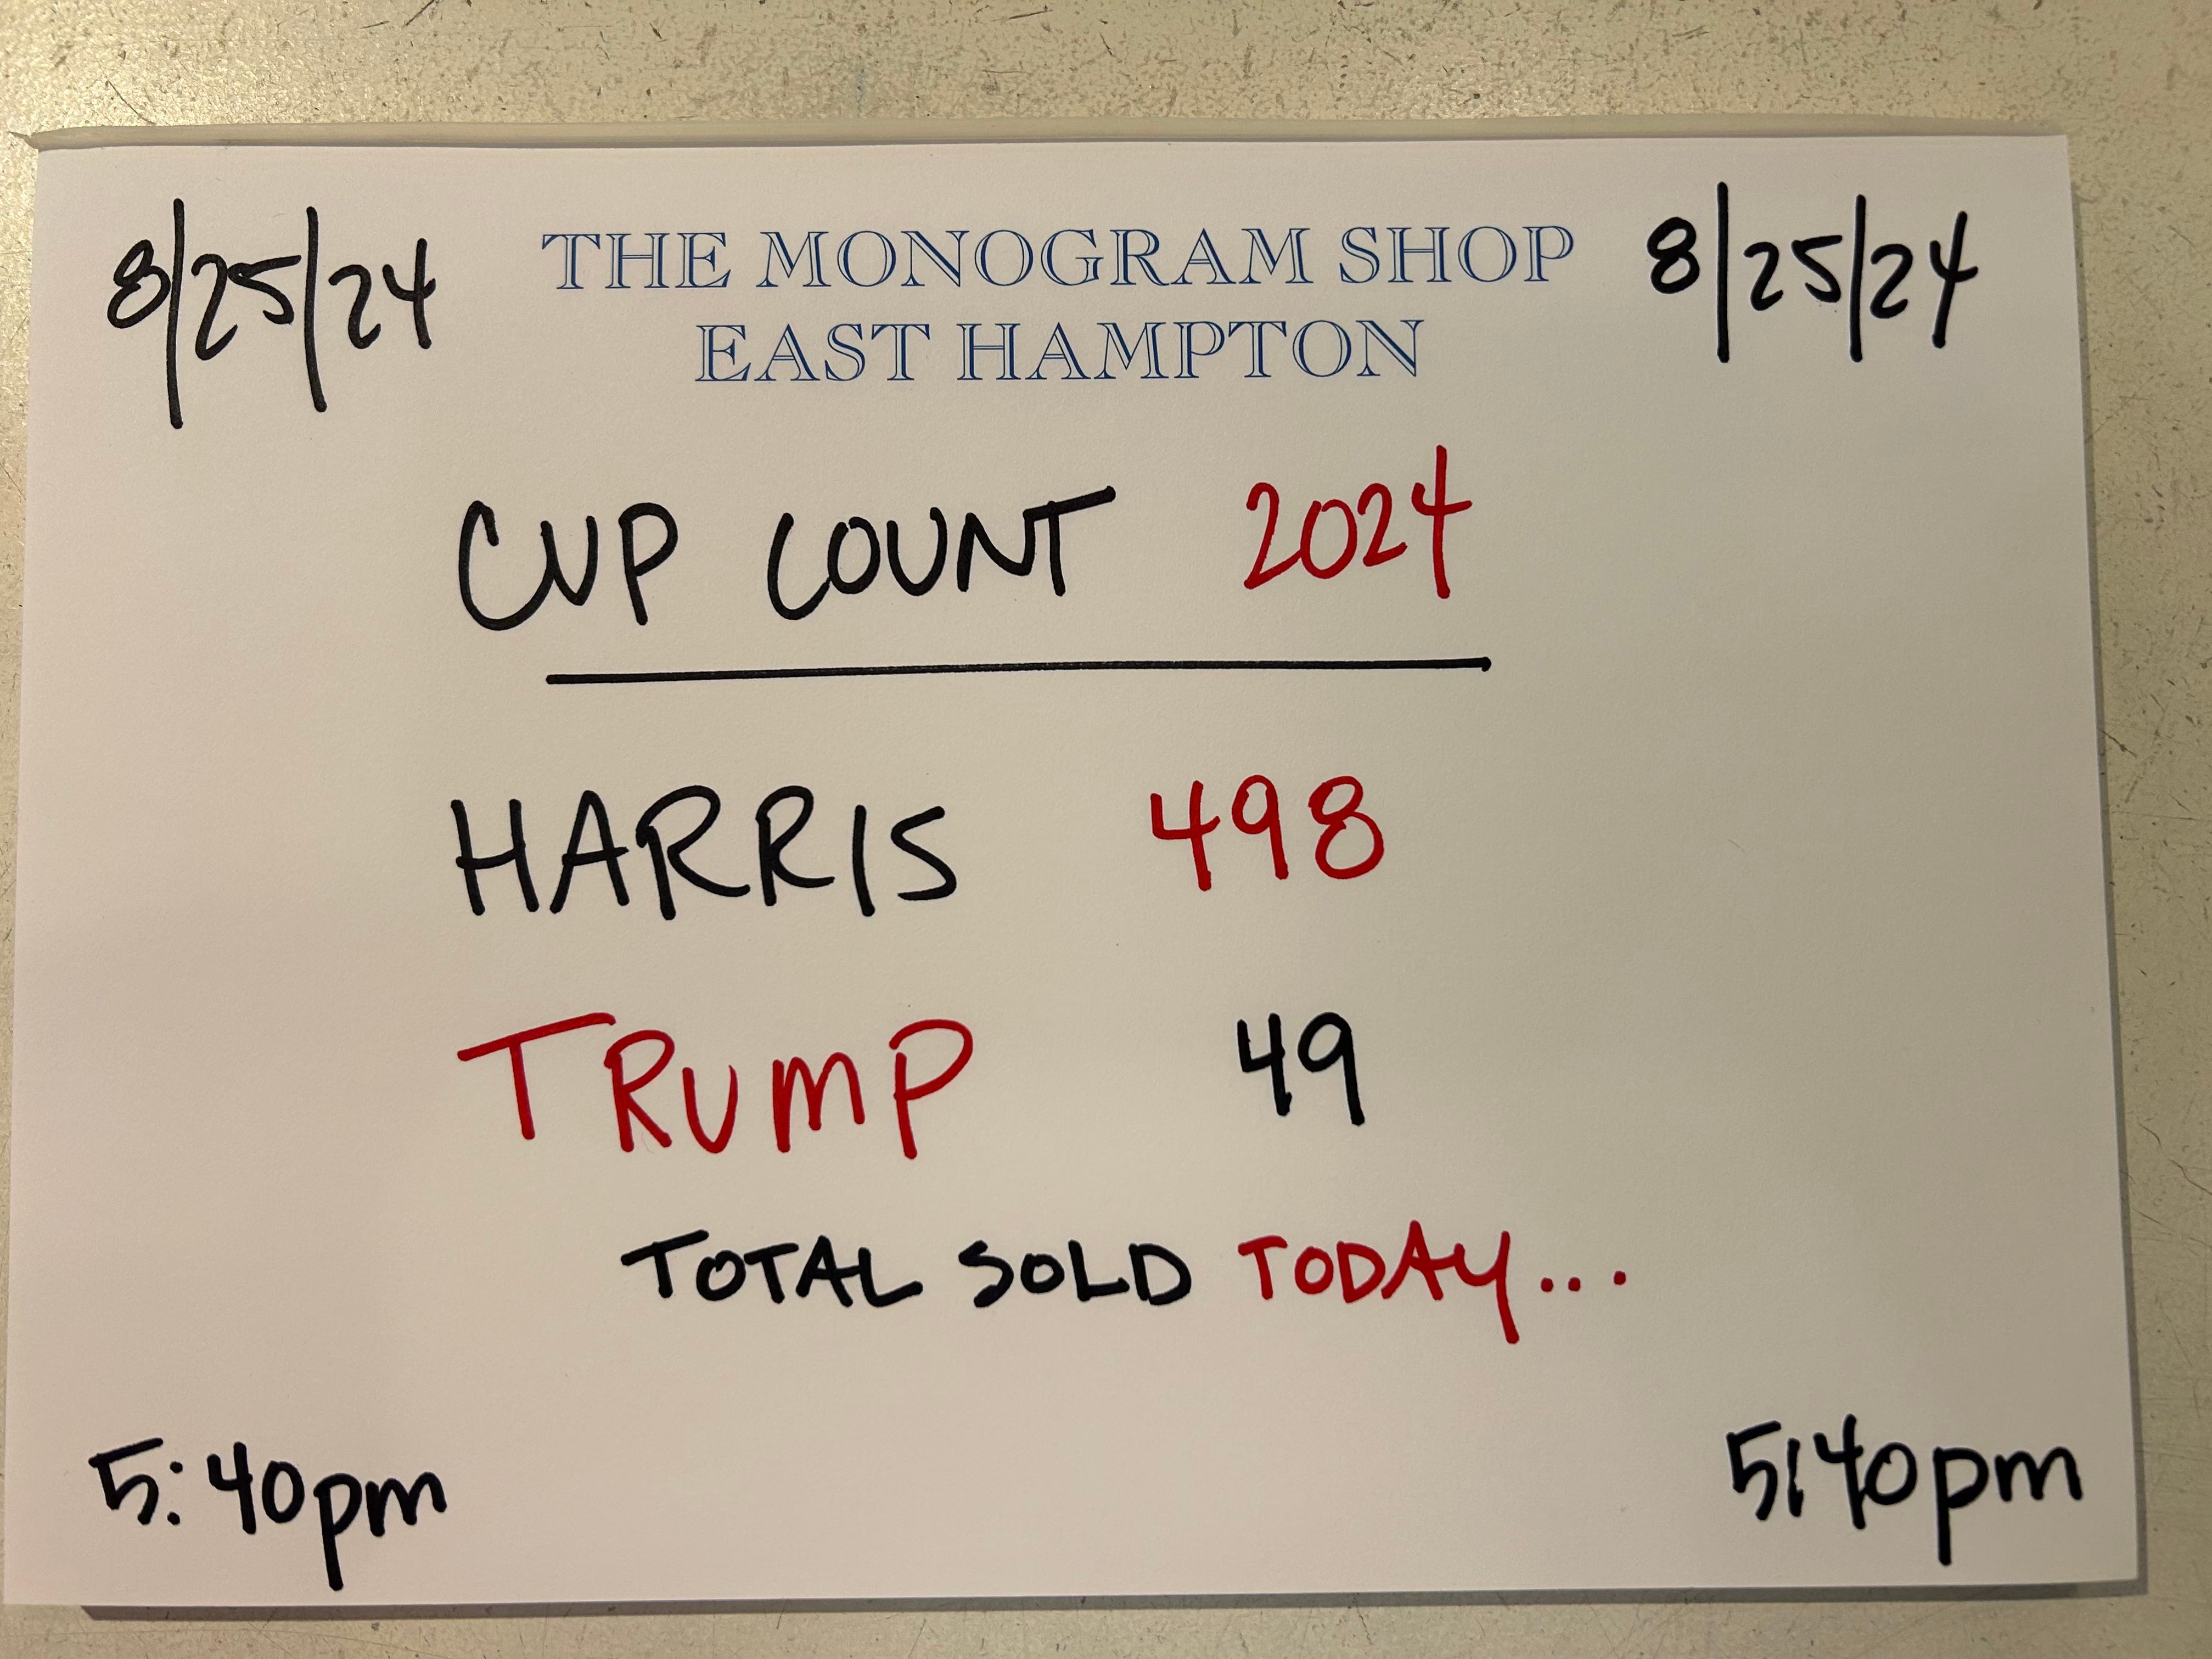 8/25/24 THE MONOGRAM SHOP 8/25/24
EAST HAMPTON
CUP COUNT 2024
HARRIS 498
TRUMP 49
TOTAL SOLD TODAY...
5:40pm 5:40pm